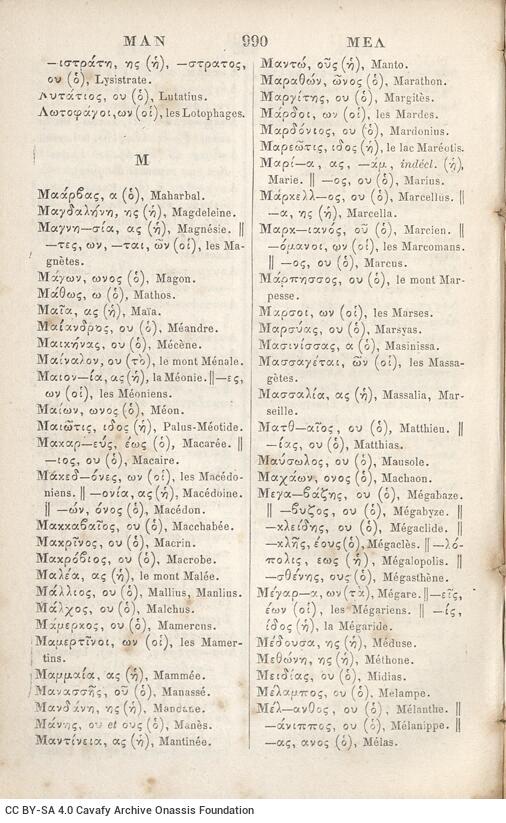 ΜΑΝ 990 ΜΕΛ
—ιστράτη, ης (ἡ), —στρατος,
ου (ὁ), Lysistrate.
Λυτάτιος, ου (ὁ), Lutatius.
Λωτοφάγοι, ων (οἱ), les Lotophages.
Μ
Μαάρβας, α (ὁ), Maharbal.
Μαγδαληνὴ, ης (ἡ), Magdeleine.
Μαγνη—σία, ας (ἡ), Magnésie. ||
—τες, ων, —ται, ῶν (οἱ), les Ma-
gnètes.
Μάγων, ωνος (ὁ), Magon.
Μάθως, ω (ὁ), Mathos.
Μαῖα, ας (ἡ), Maïa.
Μαίανδρος, ου (ὁ), Méandre.
Μαικήνας, ου (ὁ), Mécène.
Μαίναλον, ου (τὸ), le mont Ménale.
Μαιον—ία, ας (ἡ), la Méonie. || —ες,
ων (οἱ), les Méoniens.
Μαίων, ωνος (ὁ), Méon.
Μαιῶτις, ιδος (ἡ), Palus-Méotide.
Μακαρ—εύς, έως (ὁ), Macarée. ||
—ιος, ου (ὁ), Macaire.
Μακεδ—όνες, ων (οἱ), les Macédo-
niens. || —ονία, ας (ἡ), Macédoine.
|| —ών, όνος (ὁ), Macédon.
Μακκαβαῖος, ου (ὁ), Macchabée.
Μακρῖνος, ου (ὁ), Macrin.
Μακρόβιος, ου (ὁ), Macrobe.
Μαλέα, ας (ἡ), le mont Malée.
Μάλλιος, ου (ὁ), Mallius, Manlius.
Μάλχος, ου (ὁ), Malchus.
Μάμερκος, ου (ὁ), Mamercus.
Μαμερτῖνοι, ων (οἱ), les Mamer-
tins.
Μαμμαία, ας (ἡ), Mammée.
Μανασσῆς, οῦ (ὁ), Manassé.
Μανδάνη, ης (ἡ), Mandane.
Μάνης, ου et ους (ὁ), Manès.
Μαντίνεια, ας (ἡ), Mantinée.
Μαντώ, οῦς (ἡ), Manto.
Μαραθών, ῶνος (ὁ), Marathon.
Μαργίτης, ου (ὁ), Margitès.
Μάρδοι, ων (οἱ), les Mardes.
Μαρδόνιος, ου (ὁ), Mardonius.
Μαρεῶτις, ιδος (ἡ), le lac Maréotis.
Μαρί—α, ας, —αμ, indécl. (ἡ),
Marie. || —ος, ου (ὁ), Marius.
Μάρκελλ—ος, ου (ὁ), Marcellus. ||
—α, ης (ἡ), Marcella.
Μαρκ—ιανός, οῦ (ὁ), Marcien. ||
—όμανοι, ων (οἱ), les Marcomans.
|| —ος, ου (ὁ), Marcus.
Μάρπησσος, ου (ὁ), le mont Mar-
pesse.
Μαρσοι, ων (οἱ), les Marses.
Μαρσύας, ου (ὁ), Marsyas.
Μασινίσσας, α (ὁ), Masinissa.
Μασσαγέται, ῶν (οἱ), les Massa-
gètes.
Μασσαλία, ας (ἡ), Massalia, Mar-
seille.
Ματθ—αῖος, ου (ὁ), Matthieu. ||
—ίας, ου (ὁ), Matthias.
Μαύσωλος, ου (ὁ), Mausole.
Μαχάων, ονος (ὁ), Machaon.
Μεγα—βάζης, ου (ὁ), Mégabaze.
|| —βυζος, ου (ὁ), Mégabyze. ||
—κλείδης, ου (ὁ), Mégaclide. ||
—κλῆς, έους (ὁ), Mégaclès. || —λό-
πολις, εως (ἡ), Mégalopolis. ||
—σθένης, ους (ὁ), Mégasthène.
Μέγαρ—α, ων (τὰ), Mégare. || —εῖς,
έων (οἱ), les Mégariens. || —ίς,
ίδος (ἡ), la Mégaride.
Μέδουσα, ης (ἡ), Méduse.
Μεθώνη, ης (ἡ), Méthone.
Μειδίας, ου (ὁ), Midias.
Μέλαμπος, ου (ὁ), Melampe.
Μέλ—ανθος, ου (ὁ), Mélanthe. ||
—άνιππος, ου (ὁ), Mélanippe. ||
—ας, ανος (ὁ), Mélas.
CC BY-SA 4.0 Cavafy Archive Onassis Foundation